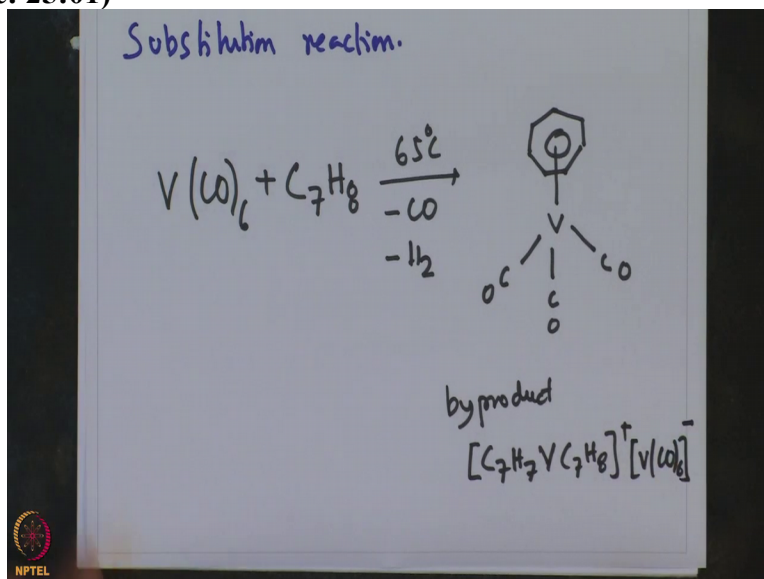 c. 25:01)
Substitution reaction.
V(CO)6 + C7H8
65°C
-CO
-H2
V
OC
C
O
CO
byproduct
[C7H7VC7H8]+[V(CO)6]-
NPTEL